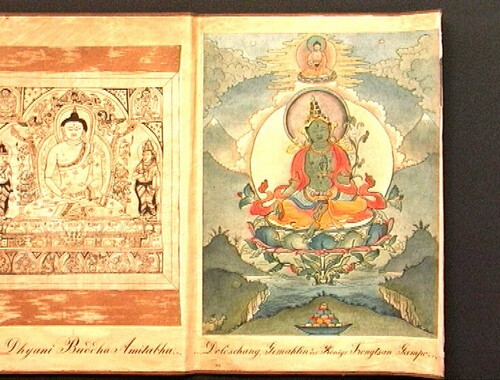 Dhyani Buddha Amitabha...
...Doloschang, Gemahlin des Königs Srongtsan Gampo...